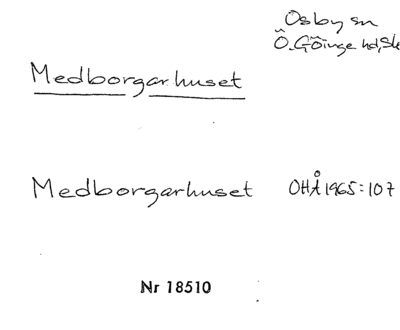 Osby sn
Ö. Göinge hd, Sk
Medborgarhuset
Medborgarhuset OHÅ 1965:107
Nr 18510